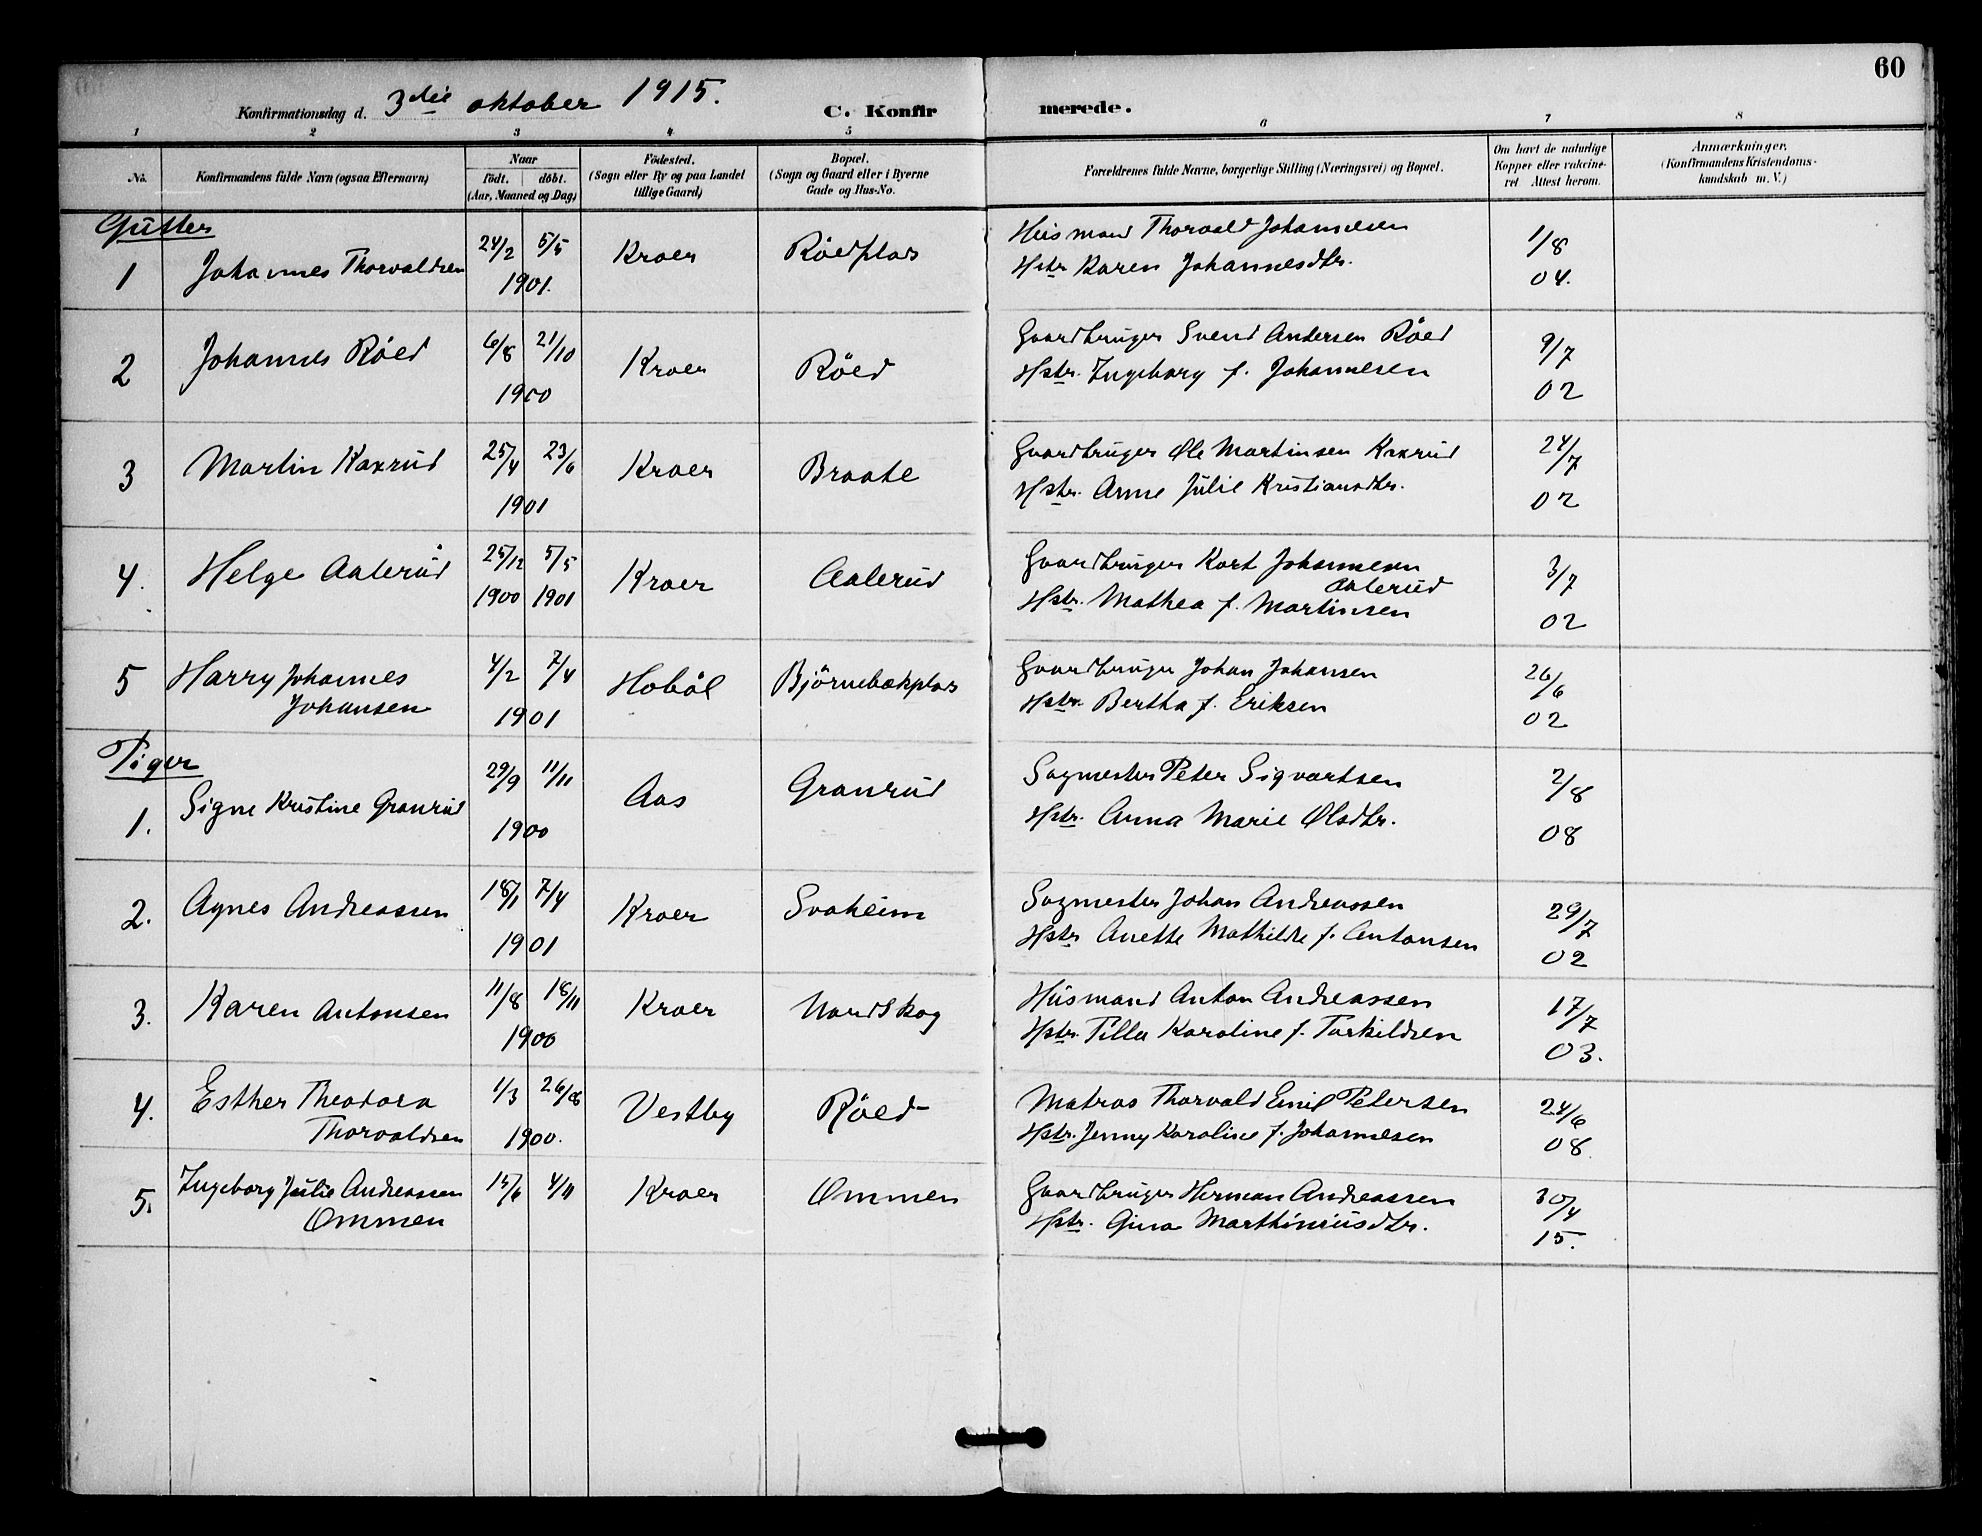 60
Konfirmationsdag d. 3die oktober 1915.
C. Konfirmerede.
1 2 3 4 5 6 7 8
No.
Konfirmandens fulde Navn (ogsaa Efternavn)
Naar
født. døbt.
(Aar, Maaned og Dag)
Fødested.
(Sogn eller By og paa Landet
tillige Gaard)
Bopæl.
(Sogn og Gaard eller i Byerne
Gade og Hus-No.
Forældrenes fulde Navne, borgerlige Stilling (Næringsvei) og Bopæl.
Om havt de naturlige
Kopper eller vakcine-
ret Attest herom.
Anmærkninger.
(Konfirmandens Kristendoms-
kundskab m. V.)
Gutter
1 Johannes Thorvaldsen 24/2 5/5 1901. Kroer Röedplas
Husmand Thorvald Johannesen
Hstr. Karen Johannesdtr.
1/8 04.
2 Johannes Röed 6/8 21/10 1900 Kroer Röed
Gaardbruger Svend Andersen Röed
Hstr. Ingeborg f. Johannesen
9/7 02
3 Martin Kaxrud 25/4 23/6 1901 Kroer Braate
Gaardbruger Ole Martinsen Kaxrud
Hstr. Anne Julie Kristiansdtr.
24/7 02
4. Helge Aalerud 25/12 1900 5/5 1901 Kroer Aalerud
Gaardbruger Karl Johannesen
Aalerud
Hstr. Mathea f. Martinsen
3/7 02
5 Harry Johannes
Johansen
4/2 7/4 1901 Hobøl Björnebækplas
Gaardbruger Johan Johansen
Hstr. Bertha f. Eriksen
26/6 02
Piger
1. Signe Kristine Granrud 29/9 11/11 1900 Aas Granrud
Sagmester Peter Sigvartsen
Hstr. Anna Marie Olsdtr.
2/8 08
2. Agnes Andreassen 18/1 7/4 1901 Kroer Svaheim
Sagmester Johan Andreassen
Hstr Anette Mathilde f. Antonsen
29/7 02
3. Karen Antonsen 11/8 18/11 1900 Kroer Nordskog
Husmand Anton Andreassen
Hstr. Tilla Karoline f. Torkildsen
17/7 03.
4. Esther Theodora
Thorvaldsen
1/3 26/8 1900. Vestby Röed
Matros Thorvald Emil Petersen
Hstr. Jenny Karoline f. Johannesen
24/6 08.
5. Ingeborg Julie Andreassen
Ommen
15/6 4/11 Kroer Ommen
Gaardbruger Herman Andreassen
Hstr. Gina Marthiniusdtr.
30/4 15.